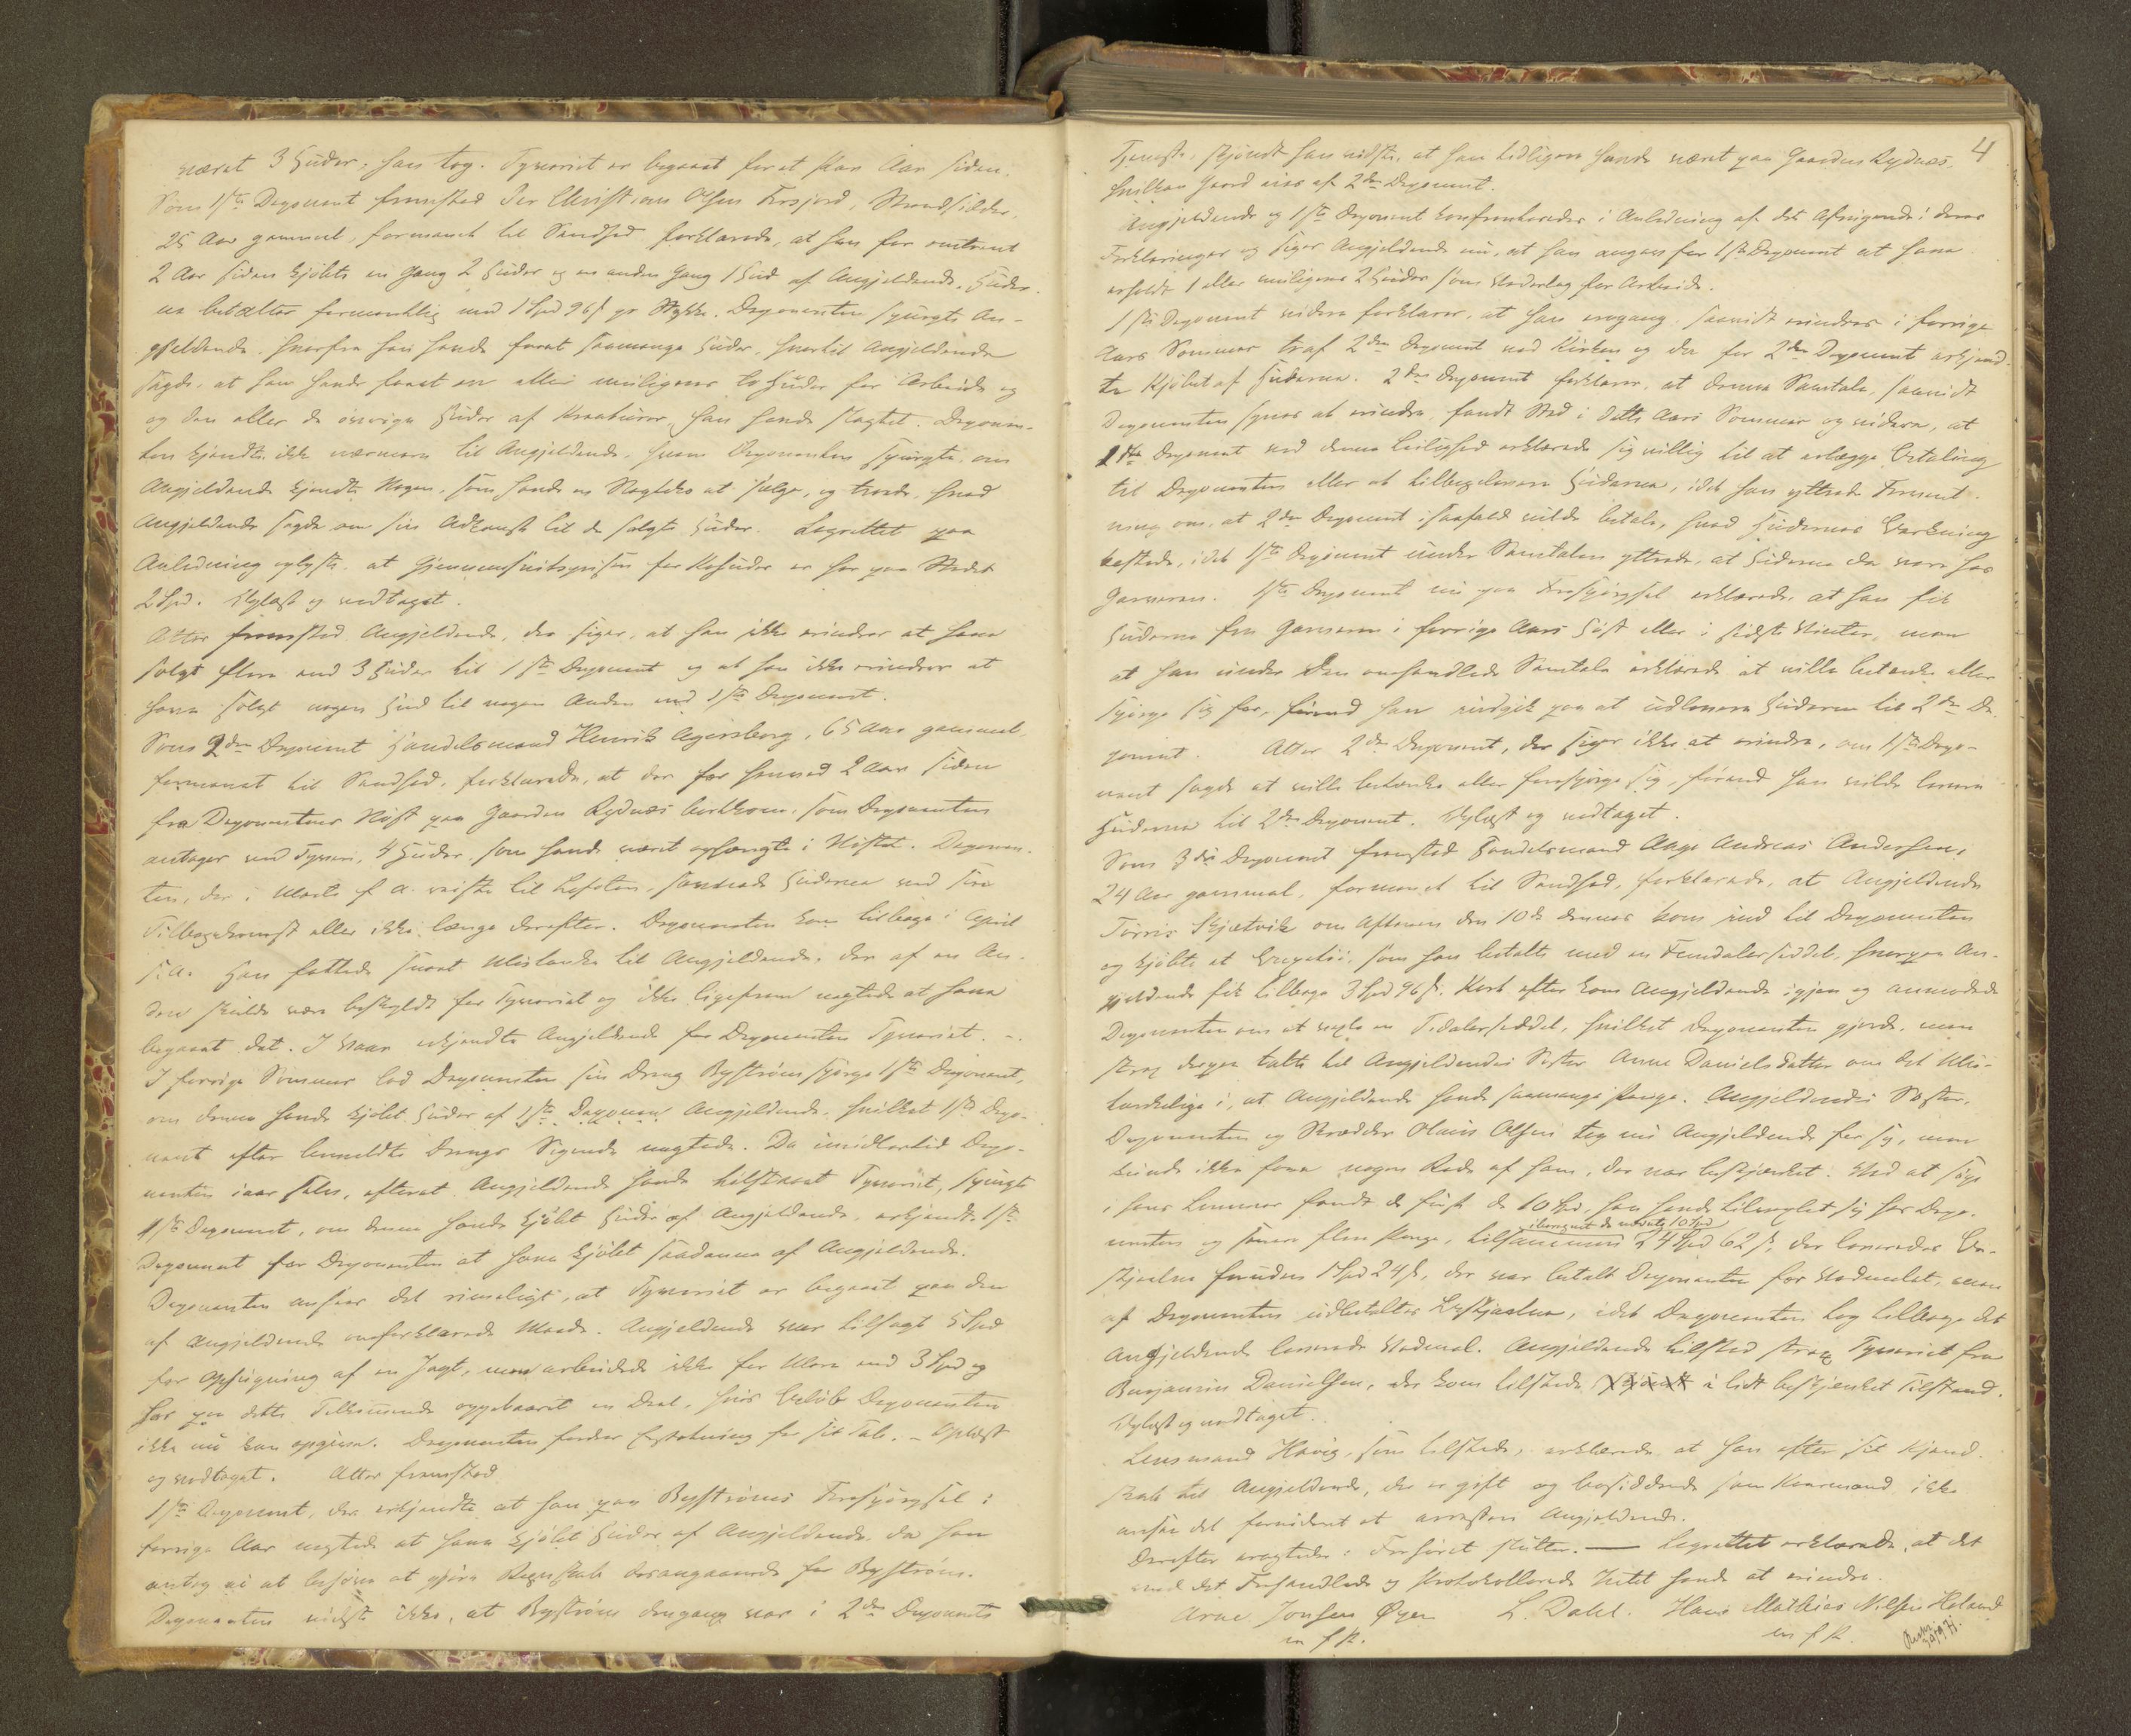 været 3 Huder, han tog. Tyveriet er begaaet for et Par Aar siden.
Som 1ste Deponent fremstod Per Christian Olsen Forsjord, Strandsidder,
25 Aar gammel, formanet til Sandhed forklarede, at han for omtrent
2 Aar siden kjøbte en Gang 2 Huder og en anden Gang 1 Hud af Angjeldende. Huder-
ne betaltes formentlig med 1 Spd 96 s pr Stykke. Deponenten spurgte An-
gjeldende, hvorfra han havde faaet saamange Huder, hvortil Angjeldende
sagde, at han havde faaet en eller muligens to Huder for Arbeide og
og den eller de øvrige Huder af Kreaturer, han havde slagtet. Deponen-
ten kjendte ikke nærmere til Angjeldende, hvem Deponenten spurgte, om
Angjeldende kjendte Nogen, som havde en Slagteko at sælge, og troede, hvad
Angjeldende sagde om sin Adkomst til de solgte Huder. Lagrettet paa
Anledning oplyste, at Gjennemsnitsprisen for Kohuder er her paa Stedet
2 Spd. Oplæst og vedtaget.
Atter fremstod Angjeldende, der siger, at han ikke erindrer at have
solgt flere end 3 Huder til 1ste Deponent og at han ikke erindrer at
have solgt nogen Hud til nogen Anden end 1ste Deponent.
Som 2den Deponent Handelsmand Henrik Agersborg, 65 Aar gammel,
formanet til Sandhed, forklarede, at der for henved 2 Aar siden
fra Deponentens Nøst paa Gaarden Rydnæs bortkom, som Deponenten
antager ved Tyveri, 4 Huder, som havde været ophængte i Nøstet. Deponen-
ten, der i Marts f. A. reiste til Lofoten, savnede Huderne ved sin
Tilbagekomst eller ikke længe derefter. Deponenten kom tilbage i April
s. A. Han fattede snart Mistanke til Angjeldende, der af en An-
den skulde være beskyldt for Tyveriet og ikke ligefrem negtede at have
begaaet det. I Vaar erkjendte Angjeldende for Deponenten Tyveriet. -
I forrige Sommer lod Deponenten sin Dreng Bystrøm spørge 1ste Deponent,
om denne havde kjøbt Huder af 1ste Deponen Angjeldende, hvilket 1ste Depo-
nent efter bemeldte Drengs Sigende negtede. Da imidlertid Depo-
nenten iaar selv, efterat Angjeldende havde tilstaaet Tyveriet, spurgte
1ste Deponent, om denne havde kjøbt Huder af Angjeldende, erkjendte 1ste
Deponent for Deponenten at have kjøbt saadanne af Angjeldende.
Deponenten anseer det rimeligt, at Tyveriet er begaaet paa den
af Angjeldende omforklarede Maade. Angjeldende var tilsagt 5 Spd
for Ophugning af en Jagt, men arbeidede ikke for Mere end 3 Spd og
har paa dette Tilkommende oppebaaret en Deel, hvis Beløb Deponenten
ikke nu kan opgive. Deponenten fordrer Erstatning for sit Tab. - Oplæst
og vedtaget. Atter fremstod
1ste Deponent, der erkjendte at han paa Bystrøms Forespørgsel i
forrige Aar negtede at have kjøbt Huder af Angjeldende, da han
antog ei at behøve at gjøre Regnskab desangaaende for Bystrøm.
Deponenten vidste ikke, at Bystrøm dengang var i 2den Deponents
4
Tjeneste, skjøndt han vidste, at han tidligere havde været paa Gaarden Rydnæs,
hvilken Gaard eies af 2den Deponent.
Angjeldende og 1ste Deponent konfronteredes i Anledning af det Afvigende i deres
Forklaringer og siger Angjeldende nu, at han angav for 1ste Deponent at have
erholdt 1 eller muligens 2 Huder som Vederlag for Arbeide.
1ste Deponent videre forklarer, at han engang, saavidt erindres i forrige
Aars Sommer traf 2den Deponent ved Kirken og der for 2den Deponent erkjend-
te Kjøbet af Huderne. 2den Deponent forklarer, at denne Samtale, saavidt
Deponenten synes at erindre, fandt Sted i dette Aars Sommer og videre, at
1ste Deponent ved denne Leilighed erklærede sig villig til at erlægge Betaling
til Deponenten eller at tilbagelevere Huderne, idet han yttrede Forment-
ning om, at 2den Deponent isaafald vilde betale, hvad Hudernes Barkning
kostede, idet 1ste Deponent under Samtalen yttrede, at Huderne da vare hos
Garveren. 1ste Deponent nu paa Forespørgsel erklærede, at han fik
Huderne fra Garveren i forrige Aars Høst eller i sidste Vinter, men
at han under den omhandlede Samtale erklærede at ville betænke eller
spørge sig for, førend han indgik paa at udlevere Huderne til 2den De-
ponent. Atter 2den Deponent, der siger ikke at erindre, om 1ste Depo-
nent sagde at ville betænke eller forespørge sig, førend han vilde levere
Huderne til 2den Deponent. Oplæst og vedtaget.
Som 3die Deponent fremstod Handelsmand Aage Andreas Andersen,
24 Aar gammel, formanet til Sandhed, forklarede, at Angjeldende
Tørris Skjætvik om Aftenen den 10de dennes kom ind til Deponenten
og kjøbte et, som han betalte med en Femdalerseddel, hvorpaa An-
gjeldende fik tilbage 3 Spd 96 s. Kort efter kom Angjeldende igjen og anmodede
Deponenten om at vexle en Tidalerseddel, hvilket Deponenten gjorde, men
strax derpaa talte til Angjeldendes Søster Anne Danielsdatter om det Mis-
tænkelige i, at Angjeldende havde saamange Penge. Angjeldendes Søster,
Deponenten og Skrædder Olaus Olsen tog nu Angjeldende for sig, men
kunde ikke faae nogen Rede af ham, der var beskjænket. Ved at søge
i hans Lommer fandt de først de 10 Spd, han havde tilvexlet sig hos Depo-
nenten og senere flere Penge, tilsammen iberegnet de nævnte 10 Spd 24 Spd 62 s, der leveredes Be-
stjaalne foruden 1 Spd 24 s, der var betalt Deponenten for Vadmelet, men
af Deponenten udbetaltes Bestjaalne, idet Deponenten tog tilbage det
Angjeldende leverede Vadmel. Angjeldende tilstod strax Tyveriet fra
Benjamin Danielsen, der kom tilstede i lidt beskjænket Tilstand.
Oplæst og vedtaget.
Lensmand Havig, som tilstede, erklærede, at han efter sit Kjend-
skab til Angjeldende, der er gift og bosiddende som Kaarmand, ikke
ansaa det fornødent at arrestere Angjeldende.
Derefter eragtedes: Forhøret sluttes. — Lagrettet erklærede, at det
ved det Forhandlede og Protokollerede Intet havde at erindre.
Arne Jonsen Øyen L. Dahl. Hans Mathias Nilsen Holand
m f P. m f P.